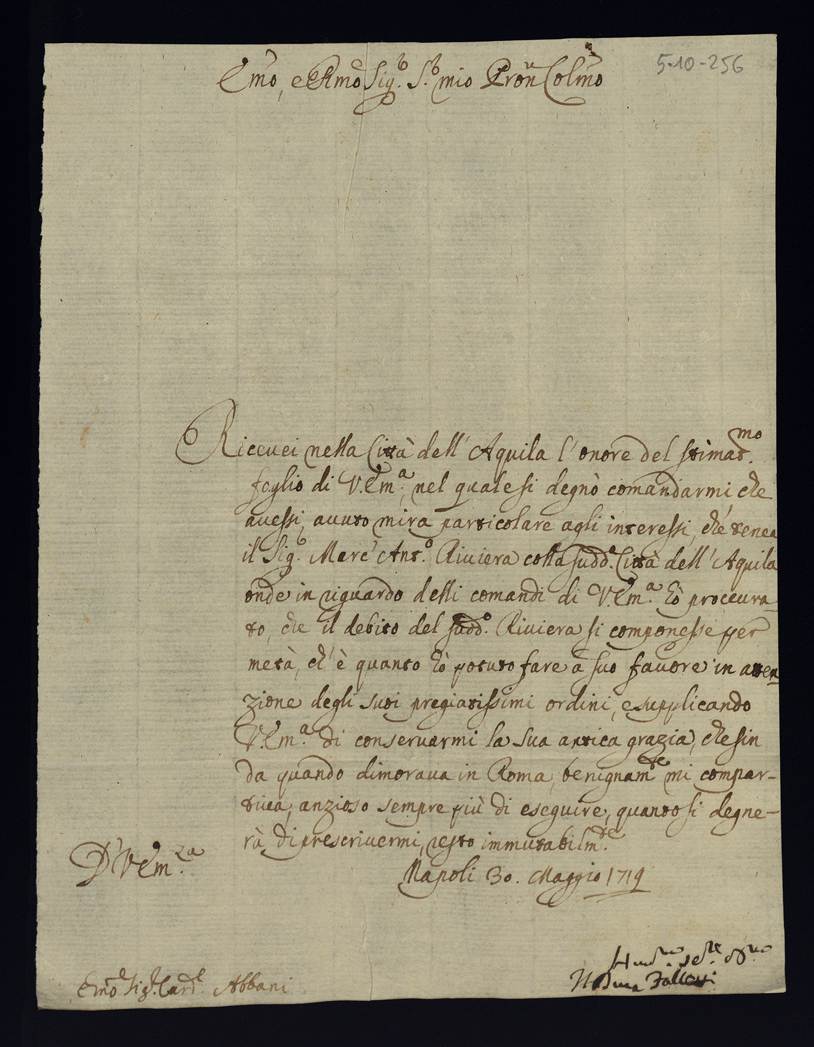 5-10-256
Emo, e Rmo Sig.r S.r mio Pron Colmo
Riceuei nella Città dell' Aquila l'onore del stimat.mo
foglio di V. Em.a, nel quale si degnò comandarmi che
auessi auuto mira particolare agli interessi, che tenea
il Sig.r Marc' Ant.o Riviera colla sudd.a Città dell' Aquila
onde in riguardo delli comandi di V. Em.a hò proccura-
to, che il debito del sudd.o Riviera si componesse per
metà, ch' è quanto hò potuto fare a suo fauore in atten-
zione degli suoi pregiatissimi ordini, e supplicando
V. Em.a di conseruarmi la sua antica grazia, che sin
da quando dimoraua in Roma, benignam.te mi compar-
tiua, anzioso sempre più di eseguire, quanto si degne-
rà di prescriuermi, resto immutabilm.te
D' V. Em.za
Napoli 30. Maggio 1719
Emo Sig.r Card.l Albani